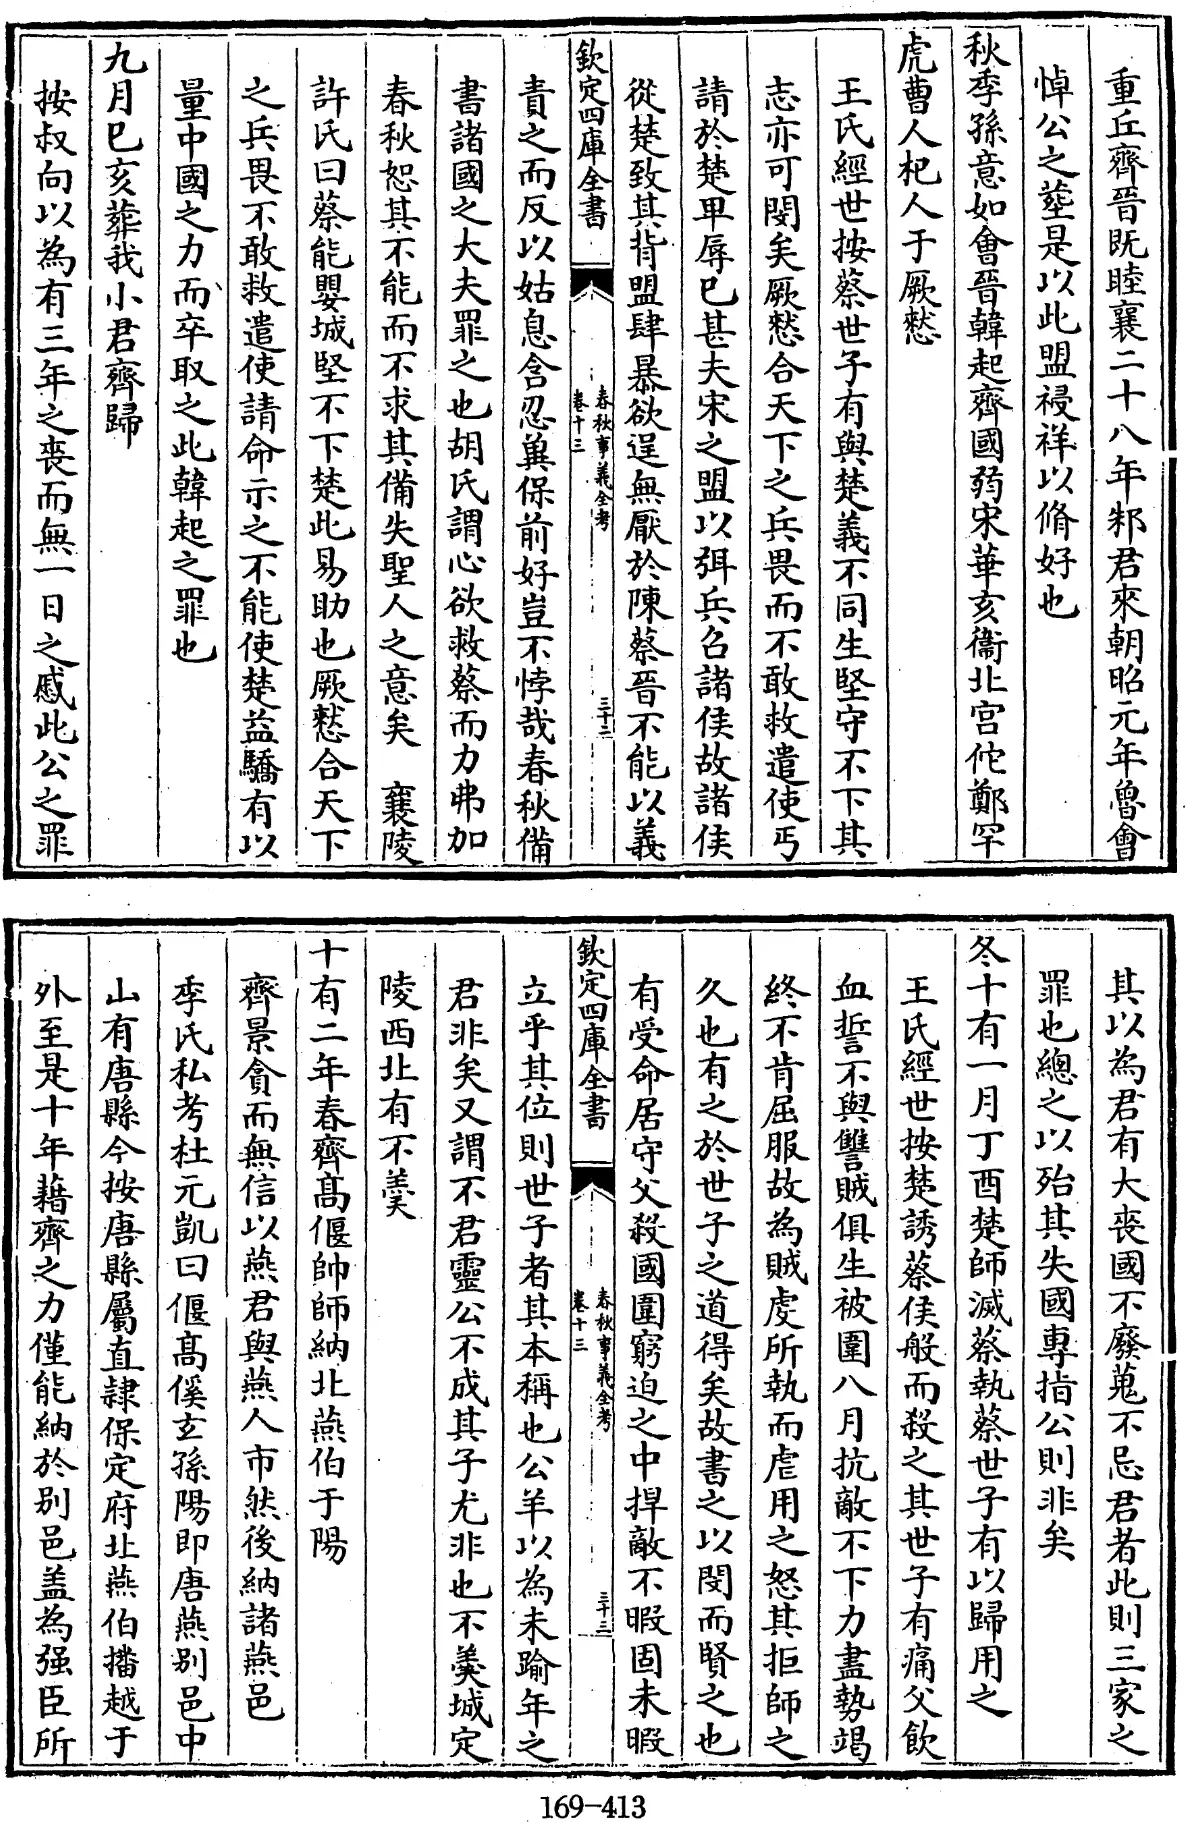 重丘齊晉既睦襄二十八年邾君來朝昭元年魯會
悼公之塟是以此盟祲祥以脩好也
秋季孫意如會晉韓起齊國弱宋華亥衞北宮佗鄭罕
虎曹人杞人于厥憖
王氏經世按蔡世子有與楚義不同生堅守不下其
志亦可閔矣厥憖合天下之兵畏而不敢救遣使丐
請於楚卑辱已甚夫宋之盟以弭兵召諸侯故諸侯
從楚致其背盟肆暴欲逞無厭於陳蔡晉不能以義
欽定四庫全書
春秋事義全考
卷十三
三十二
責之而反以姑息含忍冀保前好豈不悖哉春秋備
書諸國之大夫罪之也胡氏謂心欲救蔡而力弗加
春秋恕其不能而不求其備失聖人之意矣 襄陵
許氏曰蔡能嬰城堅不下楚此易助也厥憖合天下
之兵畏不敢救遣使請命示之不能使楚益驕有以
量中國之力而卒取之此韓起之罪也
九月巳亥葬我小君齊歸
按叔向以為有三年之喪而無一日之慼此公之罪
其以為君有大喪國不廢蒐不忌君者此則三家之
罪也總之以殆其失國專指公則非矣
冬十有一月丁酉楚師滅蔡執蔡世子有以歸用之
王氏經世按楚誘蔡侯般而殺之其世子有痛父飲
血誓不與讐賊俱生被圍八月抗敵不下力盡勢竭
終不肯屈服故為賊虔所執而虐用之怒其拒師之
久也有之於世子之道得矣故書之以閔而賢之也
有受命居守父殺國圍窮迫之中捍敵不暇固未暇
欽定四庫全書
春秋事義全考
卷十三
三十三
立乎其位則世子者其本稱也公羊以為未踰年之
君非矣又謂不君靈公不成其子尤非也不羮城定
陵西北有不羮
十有二年春齊髙偃帥師納北燕伯于陽
齊景貪而無信以燕君與燕人市然後納諸燕邑
季氏私考杜元凱曰偃髙傒玄孫陽即唐燕别邑中
山有唐縣今按唐縣屬直隷保定府北燕伯播越于
外至是十年藉齊之力僅能納於别邑盖為强臣所
169-413